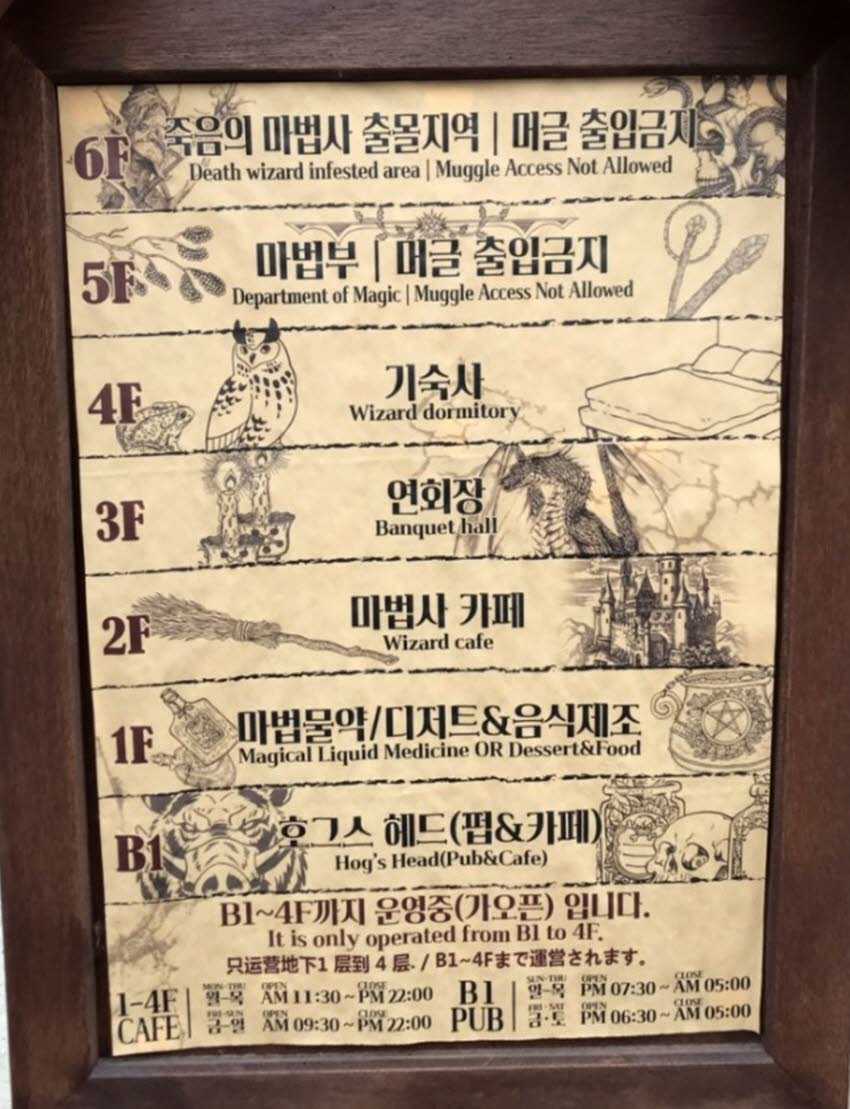 6F
죽음의 마법사 출몰지역 | 머글 출입금지
Death wizard infested area | Muggle Access Not Allowed
5F
마법부 | 머글 출입금지
Department of Magic | Muggle Access Not Allowed
4F
기숙사
Wizard dormitory
3F
연회장
Banquet hall
2F
마법사 카페
Wizard cafe
1F
마법물약/디저트&음식제조
Magical Liquid Medicine OR Dessert&Food
B1
호그스 헤드(펍&카페)
Hog's Head(Pub&Cafe)
B1~4F까지 운영중(가오픈) 입니다.
It is only operated from B1 to 4F.
只运营地下1 层到 4 层. / B1~4Fまで運営されます。
1-4F CAFE
MON-THU OPEN CLOSE
월-목 AM 11:30 ~ PM 22:00
FRI-SUN OPEN CLOSE
금-일 AM 09:30 ~ PM 22:00
B1 PUB
SUN-THU OPEN CLOSE
일-목 PM 07:30 ~ AM 05:00
FRI·SAT OPEN CLOSE
금·토 PM 06:30 ~ AM 05:00